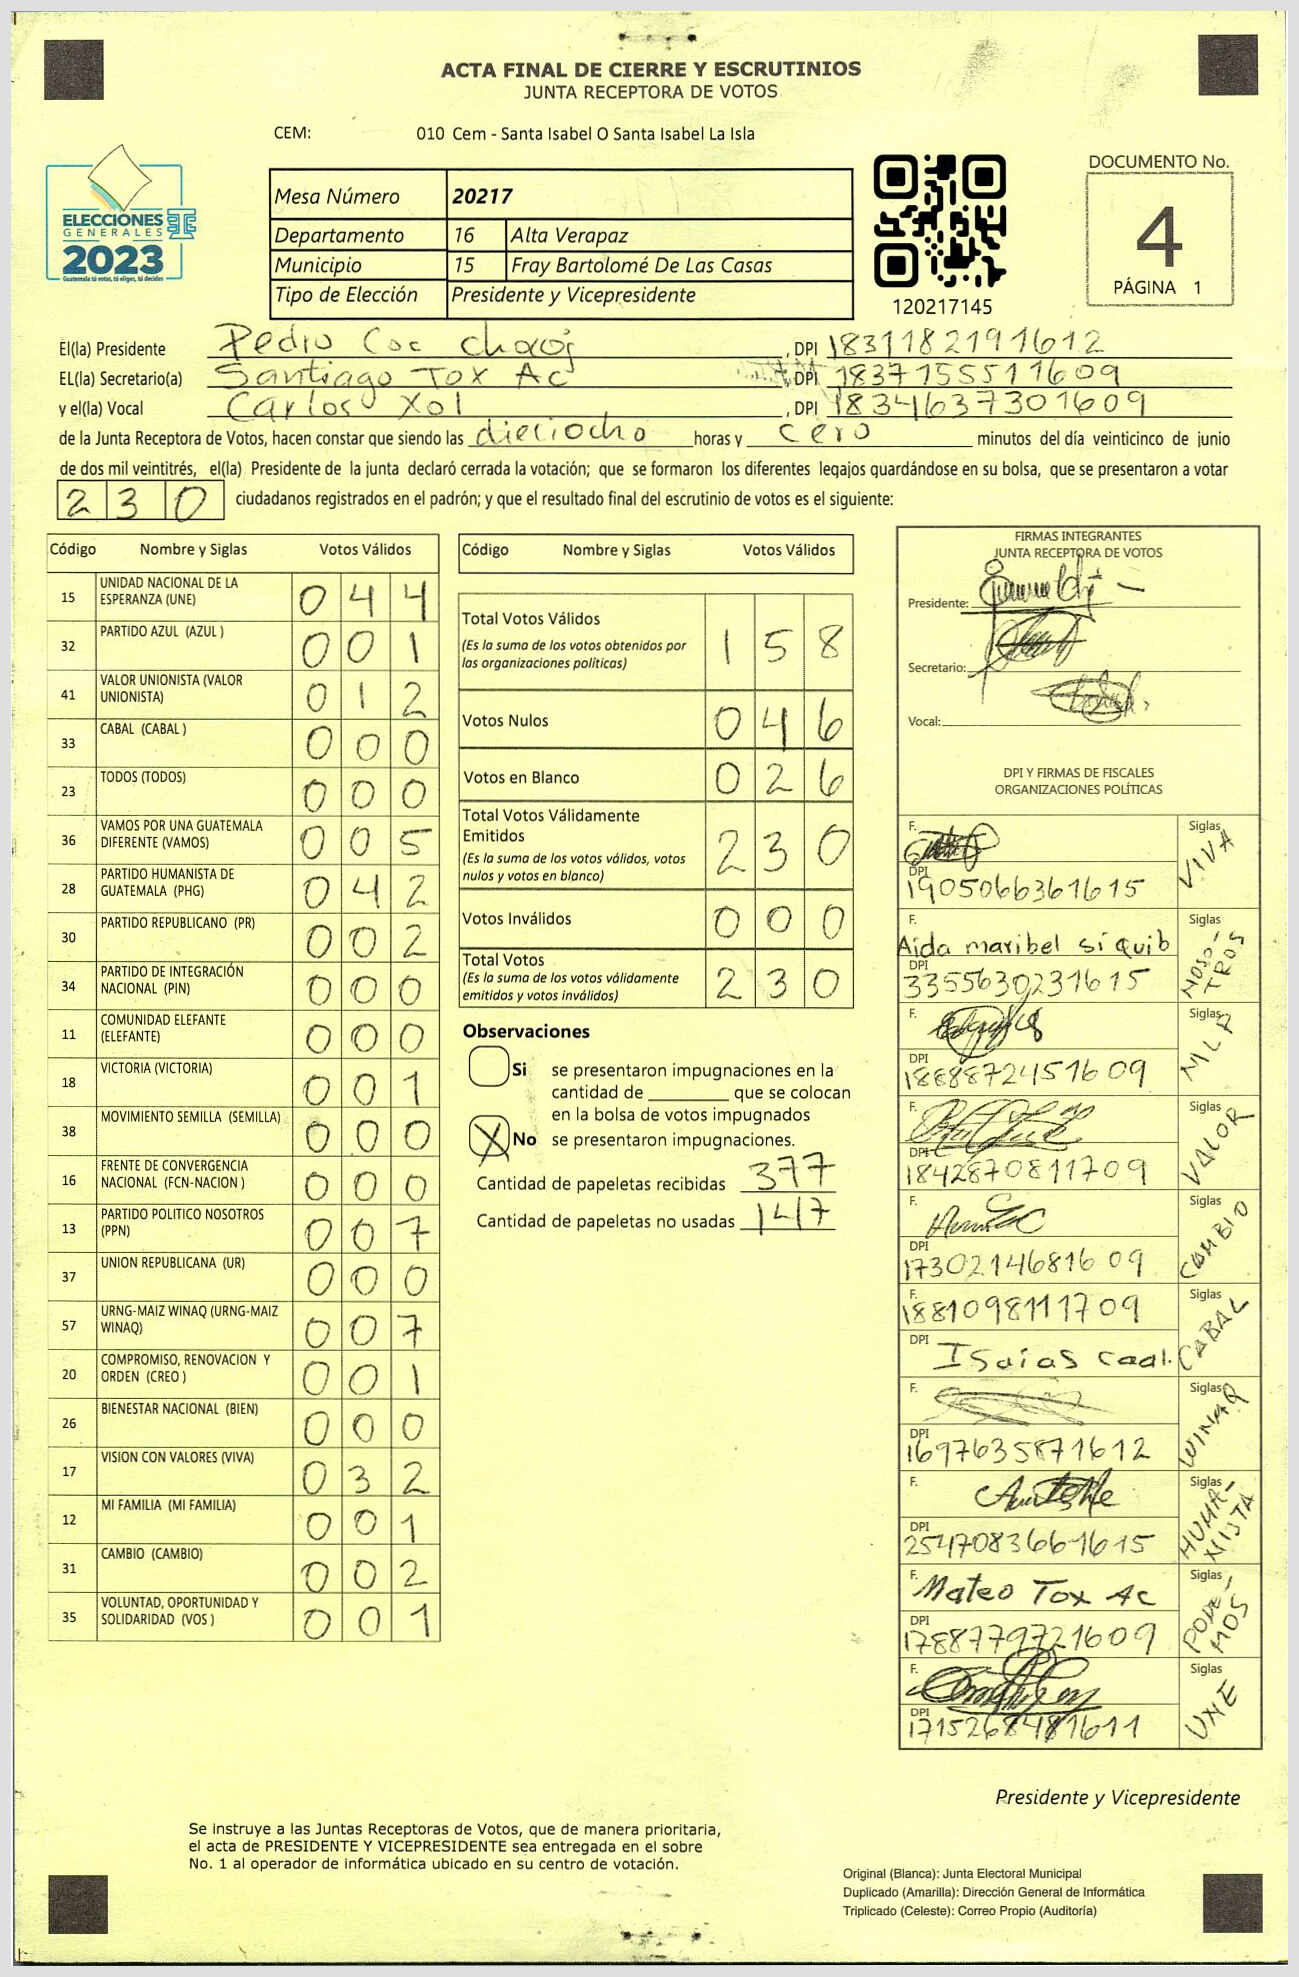 ACTA FINAL DE CIERRE Y ESCRUTINIOS
JUNTA RECEPTORA DE VOTOS
CEM: 010 Cem - Santa Isabel O Santa Isabel La Isla
ELECCIONES
GENERALES
2023
Guatemala tú votas, tú eliges, tú decides
Mesa Número 20217
Departamento 16 Alta Verapaz
Municipio 15 Fray Bartolomé De Las Casas
Tipo de Elección Presidente y Vicepresidente
120217145
DOCUMENTO No.
4
PÁGINA 1
El(la) Presidente Pedro Coc Chaoj , DPI 1831182191612
EL(la) Secretario(a) Santiago Tox Ac , DPI 1837155511609
y el(la) Vocal Carlos Xol , DPI 1834637301609
de la Junta Receptora de Votos, hacen constar que siendo las dieciocho horas y cero minutos del día veinticinco de junio
de dos mil veintitrés, el(la) Presidente de la junta declaró cerrada la votación; que se formaron los diferentes legajos guardándose en su bolsa, que se presentaron a votar
230 ciudadanos registrados en el padrón; y que el resultado final del escrutinio de votos es el siguiente:
Código Nombre y Siglas Votos Válidos
15 UNIDAD NACIONAL DE LA ESPERANZA (UNE) 044
32 PARTIDO AZUL (AZUL ) 001
41 VALOR UNIONISTA (VALOR UNIONISTA) 012
33 CABAL (CABAL ) 000
23 TODOS (TODOS) 000
36 VAMOS POR UNA GUATEMALA DIFERENTE (VAMOS) 005
28 PARTIDO HUMANISTA DE GUATEMALA (PHG) 042
30 PARTIDO REPUBLICANO (PR) 002
34 PARTIDO DE INTEGRACIÓN NACIONAL (PIN) 000
11 COMUNIDAD ELEFANTE (ELEFANTE) 000
18 VICTORIA (VICTORIA) 001
38 MOVIMIENTO SEMILLA (SEMILLA) 000
16 FRENTE DE CONVERGENCIA NACIONAL (FCN-NACION ) 000
13 PARTIDO POLITICO NOSOTROS (PPN) 007
37 UNION REPUBLICANA (UR) 000
57 URNG-MAIZ WINAQ (URNG-MAIZ WINAQ) 007
20 COMPROMISO, RENOVACION Y ORDEN (CREO ) 001
26 BIENESTAR NACIONAL (BIEN) 000
17 VISION CON VALORES (VIVA) 032
12 MI FAMILIA (MI FAMILIA) 001
31 CAMBIO (CAMBIO) 002
35 VOLUNTAD, OPORTUNIDAD Y SOLIDARIDAD (VOS ) 001
Código Nombre y Siglas Votos Válidos
Total Votos Válidos 158
(Es la suma de los votos obtenidos por
las organizaciones políticas)
Votos Nulos 046
Votos en Blanco 026
Total Votos Válidamente
Emitidos 230
(Es la suma de los votos válidos, votos
nulos y votos en blanco)
Votos Inválidos 000
Total Votos 230
(Es la suma de los votos válidamente
emitidos y votos inválidos)
Observaciones
Si se presentaron impugnaciones en la
cantidad de ________ que se colocan
en la bolsa de votos impugnados
X No se presentaron impugnaciones.
Cantidad de papeletas recibidas 377
Cantidad de papeletas no usadas 147
FIRMAS INTEGRANTES
JUNTA RECEPTORA DE VOTOS
Presidente:
Secretario:
Vocal:
DPI Y FIRMAS DE FISCALES
ORGANIZACIONES POLÍTICAS
F. Siglas VIVA
DPI 1905066361615
F. Aida maribel siquib Siglas NOSOTROS
DPI 3355630231615
F. Siglas MLP
DPI 1888872451609
F. Siglas VALOR
DPI 1842870811709
F. Siglas COMBIO
DPI 1730214681609
F. 1881098111709 Siglas CABAL
DPI Isaias Caal.
F. Siglas WINAQ
DPI 1697635871612
F. Siglas HUMANISTA
DPI 2547083661615
F. Mateo Tox Ac Siglas PODEMOS
DPI 1788779721609
F. Siglas UNE
DPI 1715268481611
Presidente y Vicepresidente
Se instruye a las Juntas Receptoras de Votos, que de manera prioritaria,
el acta de PRESIDENTE Y VICEPRESIDENTE sea entregada en el sobre
No. 1 al operador de informática ubicado en su centro de votación.
Original (Blanca): Junta Electoral Municipal
Duplicado (Amarilla): Dirección General de Informática
Triplicado (Celeste): Correo Propio (Auditoría)